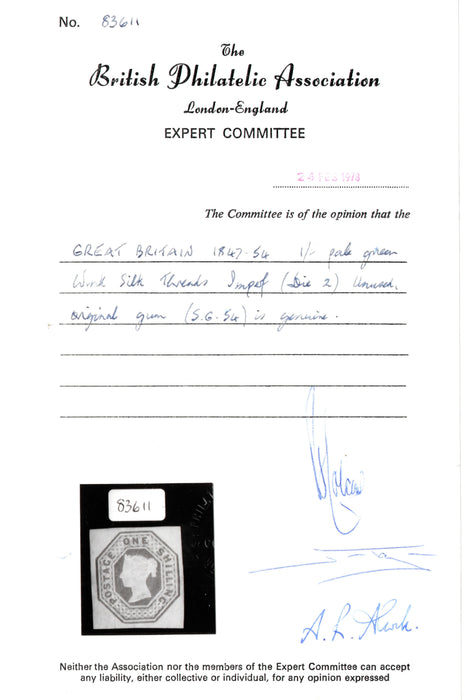 No. 83611
The
British Philatelic Association
London-England
EXPERT COMMITTEE
24 FEB 1978
The Committee is of the opinion that the
GREAT BRITAIN 1847-54 1/- pale green
Wmk Silk Threads Imperf (Die 2) Unused,
original gum (S.G. 54) is genuine.
83611
POSTAGE ONE SHILLING
Neither the Association nor the members of the Expert Committee can accept
any liability, either collective or individual, for any opinion expressed